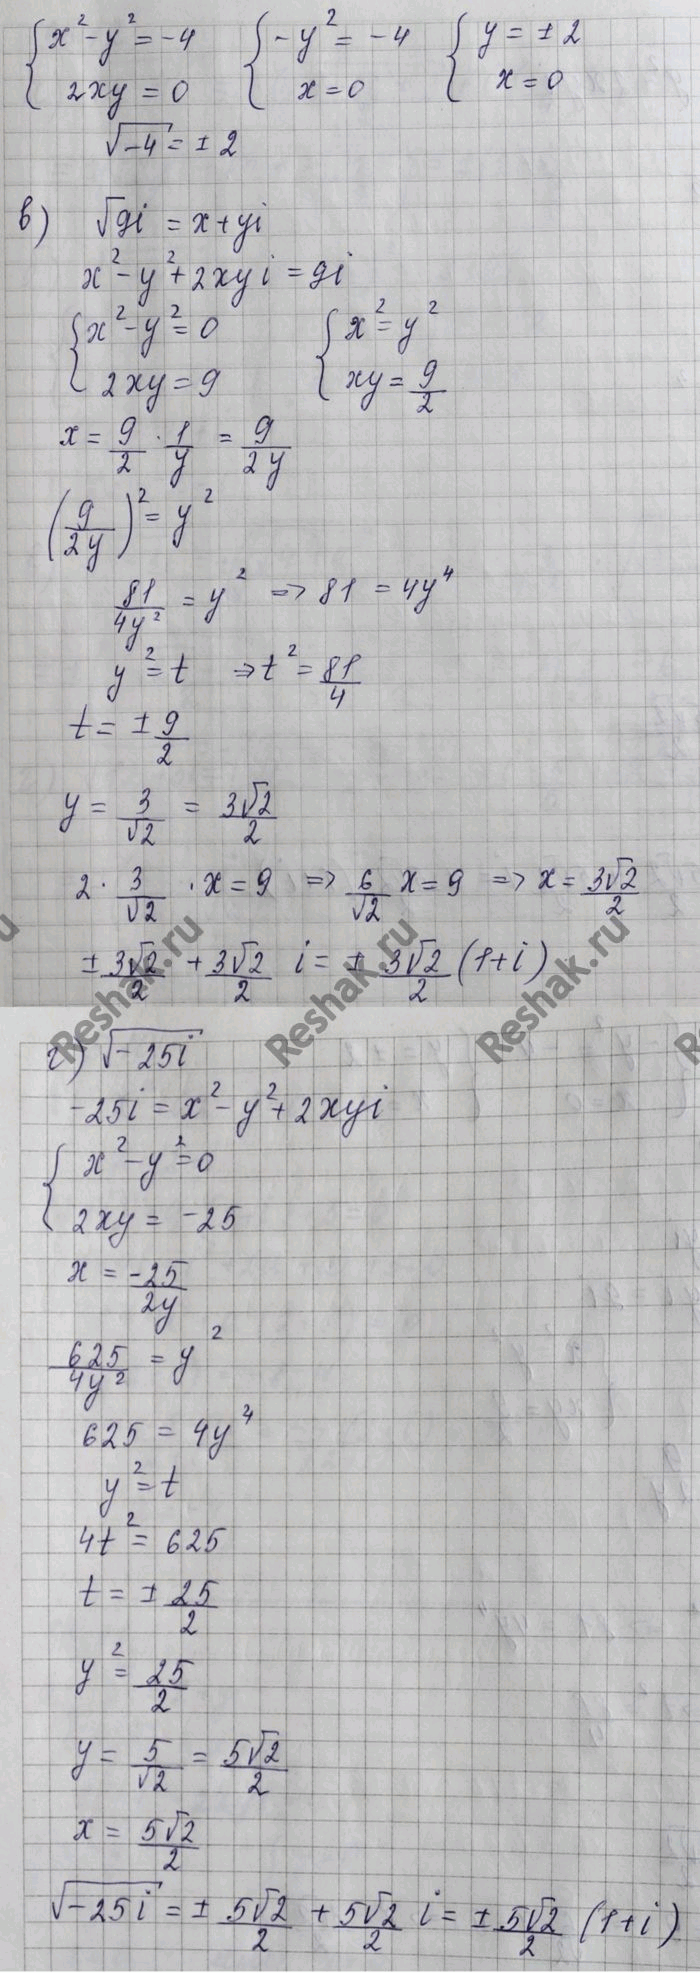 {x² - y² = -4   {-y² = -4   {y = ±2
{2xy = 0   {x = 0   {x = 0
√-4 = ±2
в) √9i = x + yi
x² - y² + 2xyi = 9i
{x² - y² = 0   {x² = y²
{2xy = 9   {xy = 9/2
x = 9/2 · 1/y = 9/2y
(9/2y)² = y²
81/4y² = y² => 81 = 4y⁴
y² = t => t² = 81/4
t = ± 9/2
y = 3/√2 = 3√2/2
2 · 3/√2 · x = 9 => 6/√2 x = 9 => x = 3√2/2
± 3√2/2 + 3√2/2 i = ± 3√2/2 (1+i)
Reshak.ru Reshak.ru Reshak.ru
г) √-25i
-25i = x² - y² + 2xyi
{x² - y² = 0
{2xy = -25
x = -25/2y
625/4y² = y²
625 = 4y⁴
y² = t
4t² = 625
t = ± 25/2
y² = 25/2
y = 5/√2 = 5√2/2
x = 5√2/2
√-25i = ± 5√2/2 + 5√2/2 i = ± 5√2/2 (1+i)